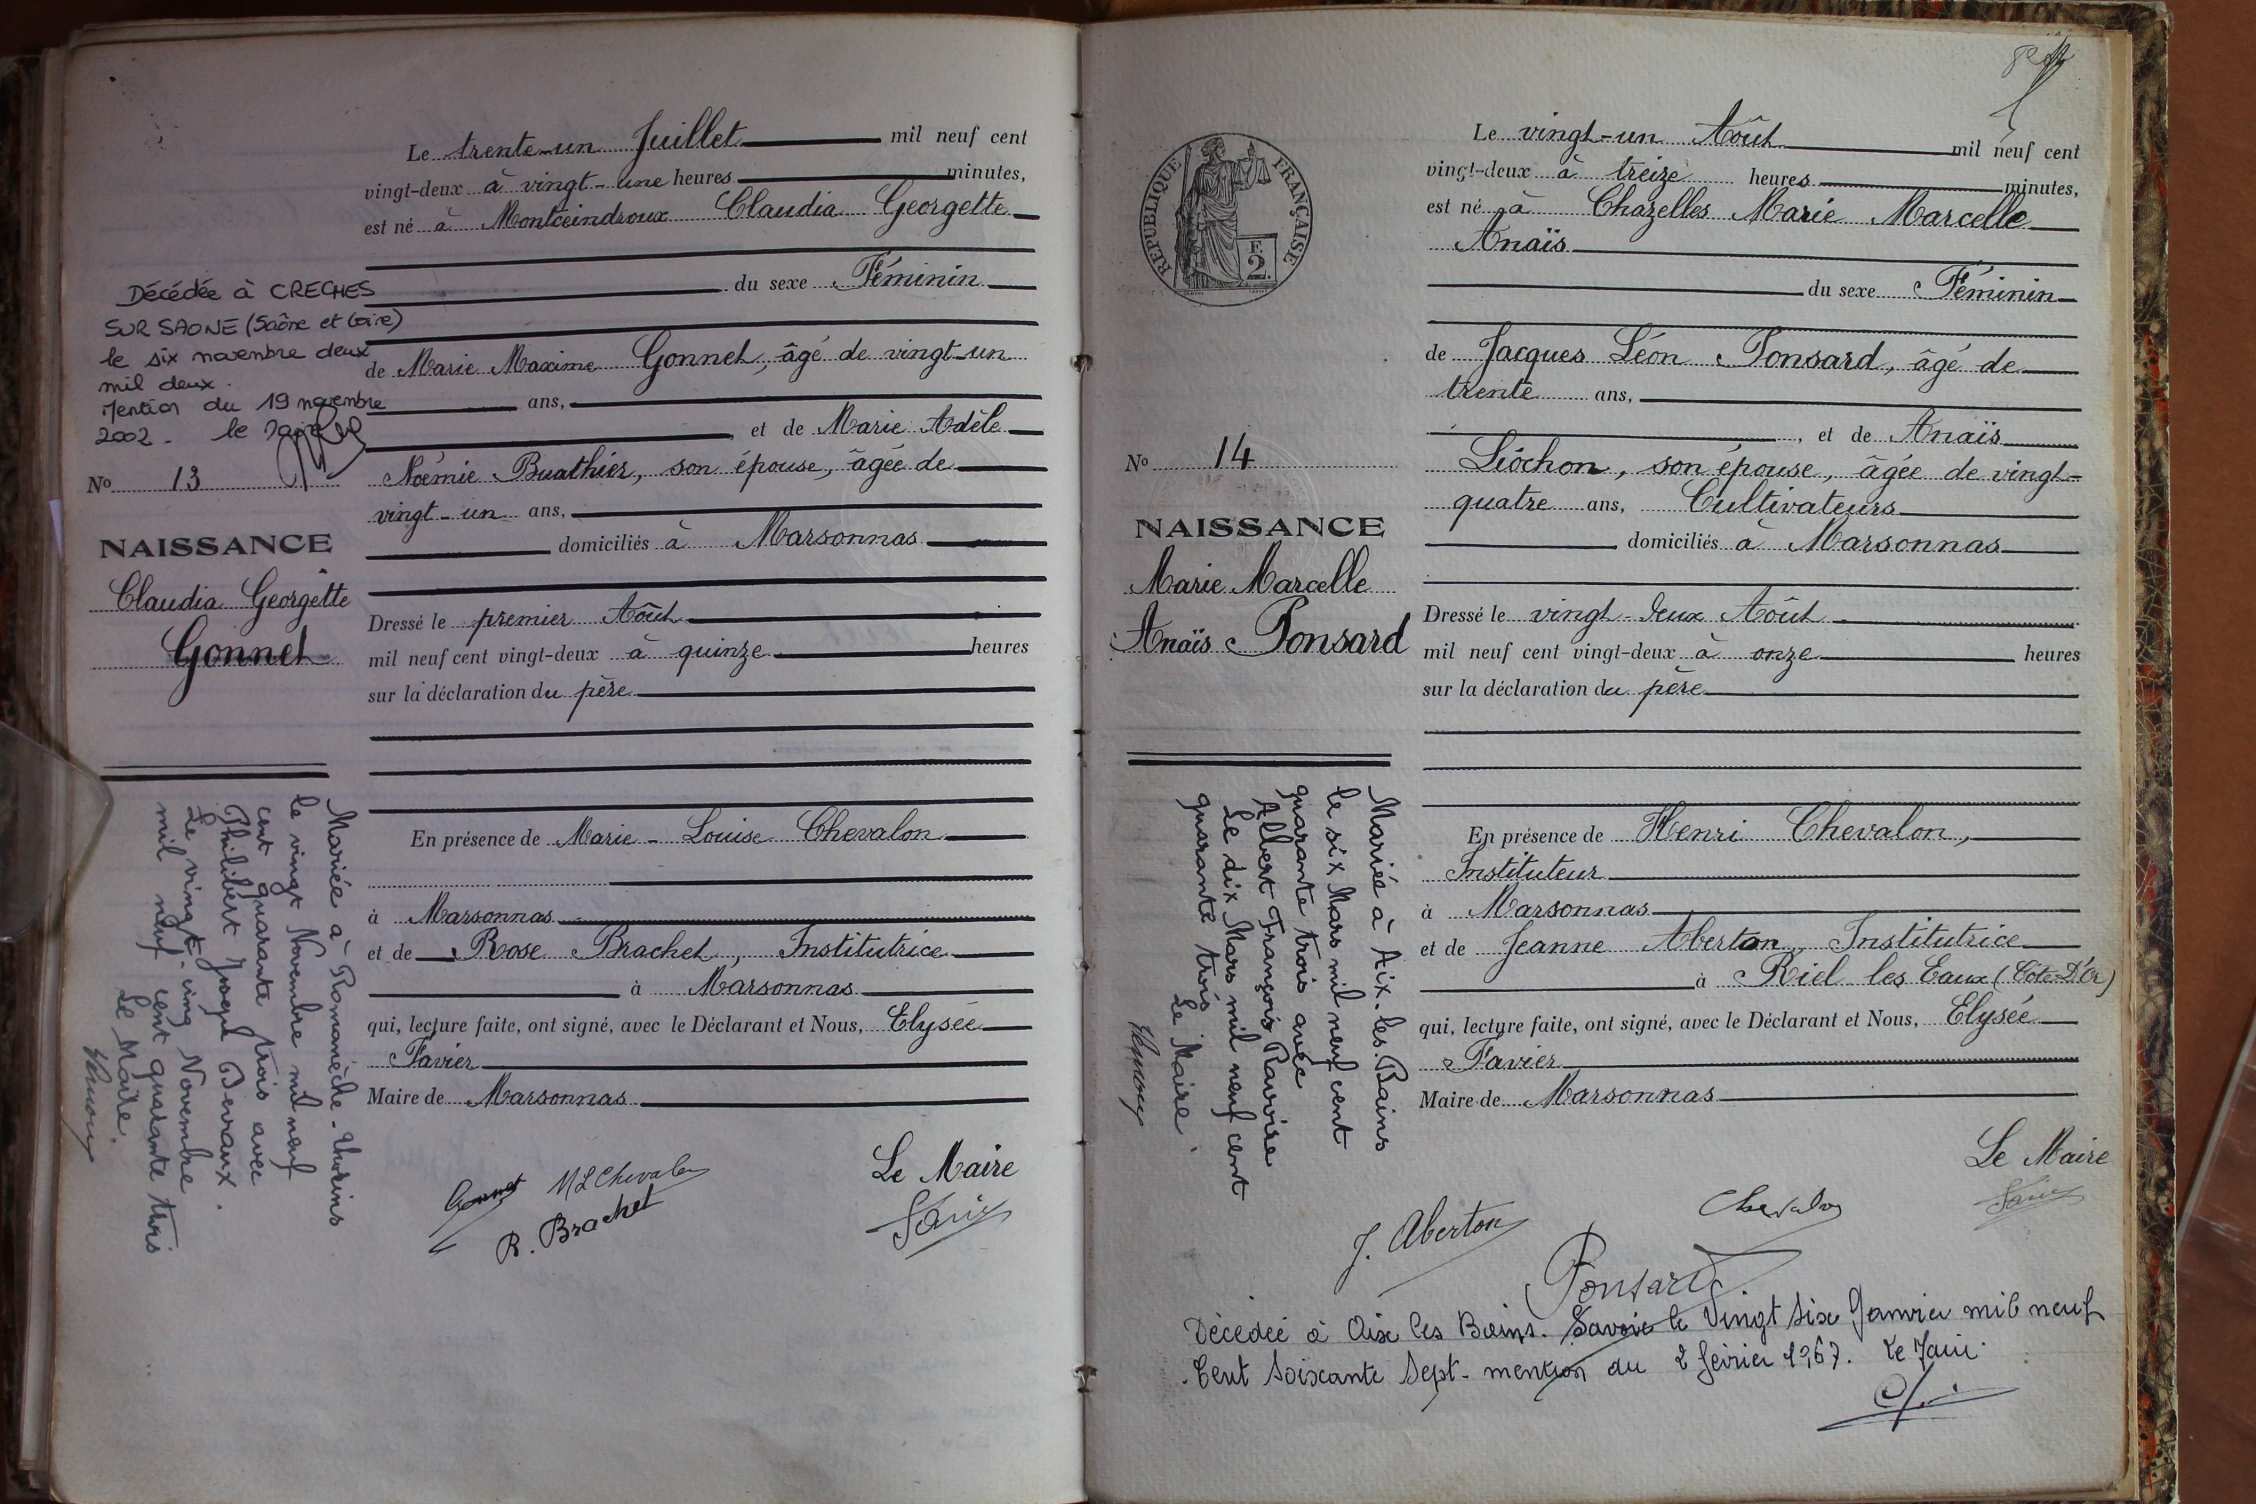 Le trente-un Juillet mil neuf cent
vingt-deux à vingt-une heures minutes,
est né à Montceindroux Claudia Georgette
du sexe Féminin
de Marie Maxime Gonnet, âgé de vingt-un
ans,
et de Marie Adèle
Noémie Buathier, son épouse, âgée de
vingt-un ans,
domiciliés à Marsonnas
Dressé le premier Août
mil neuf cent vingt-deux à quinze heures
sur la déclaration du père
En présence de Marie-Louise Chevalon
à Marsonnas
et de Rose Brachet, Institutrice
à Marsonnas
qui, lecture faite, ont signé, avec le Déclarant et Nous, Elysée
Favier
Maire de Marsonnas
Le Maire
Gonnet MLChevalon
R. Brachet
Favier
Décédée à CRECHES
SUR SAONE (Saône et Loire)
le six novembre deux
mil deux.
Mention du 19 novembre
2002. le Maire
No 13
NAISSANCE
Claudia Georgette
Gonnet
Mariée à Romanèche-Thorins
le vingt Novembre mil neuf
cent quarante trois avec
Philibert Joseph Devaux.
Le vingt-cinq Novembre
mil neuf cent quarante trois
Le Maire.
REPUBLIQUE FRANÇAISE
F.
2.
Le vingt-un Août mil neuf cent
vingt-deux à treize heures minutes,
est né à Chazelles Marie Marcelle
Anaïs
du sexe Féminin
de Jacques Léon Ponsard, âgé de
trente ans,
, et de Anaïs
Liôchon, son épouse, âgée de vingt-
quatre ans, Cultivateurs
domiciliés à Marsonnas
Dressé le vingt-deux Août
mil neuf cent vingt-deux à onze heures
sur la déclaration du père
En présence de Henri Chevalon,
Instituteur
à Marsonnas
et de Jeanne Aberton, Institutrice
à Riel les Eaux (Côte-D'Or)
qui, lecture faite, ont signé, avec le Déclarant et Nous, Elysée
Favier
Maire de Marsonnas
Le Maire
Favier
Chevalon
J. Aberton
Ponsard
Décédée à Aix les Bains. Savoie le Vingt six Janvier mil neuf
Cent soixante Sept. mention du 2 février 1967. Le Maire
No 14
NAISSANCE
Marie Marcelle
Anaïs Ponsard
Mariée à Aix-les-Bains
le six Mars mil neuf cent
quarante trois avec
Albert François Parvise
Le dix Mars mil neuf cent
quarante trois
Le Maire.